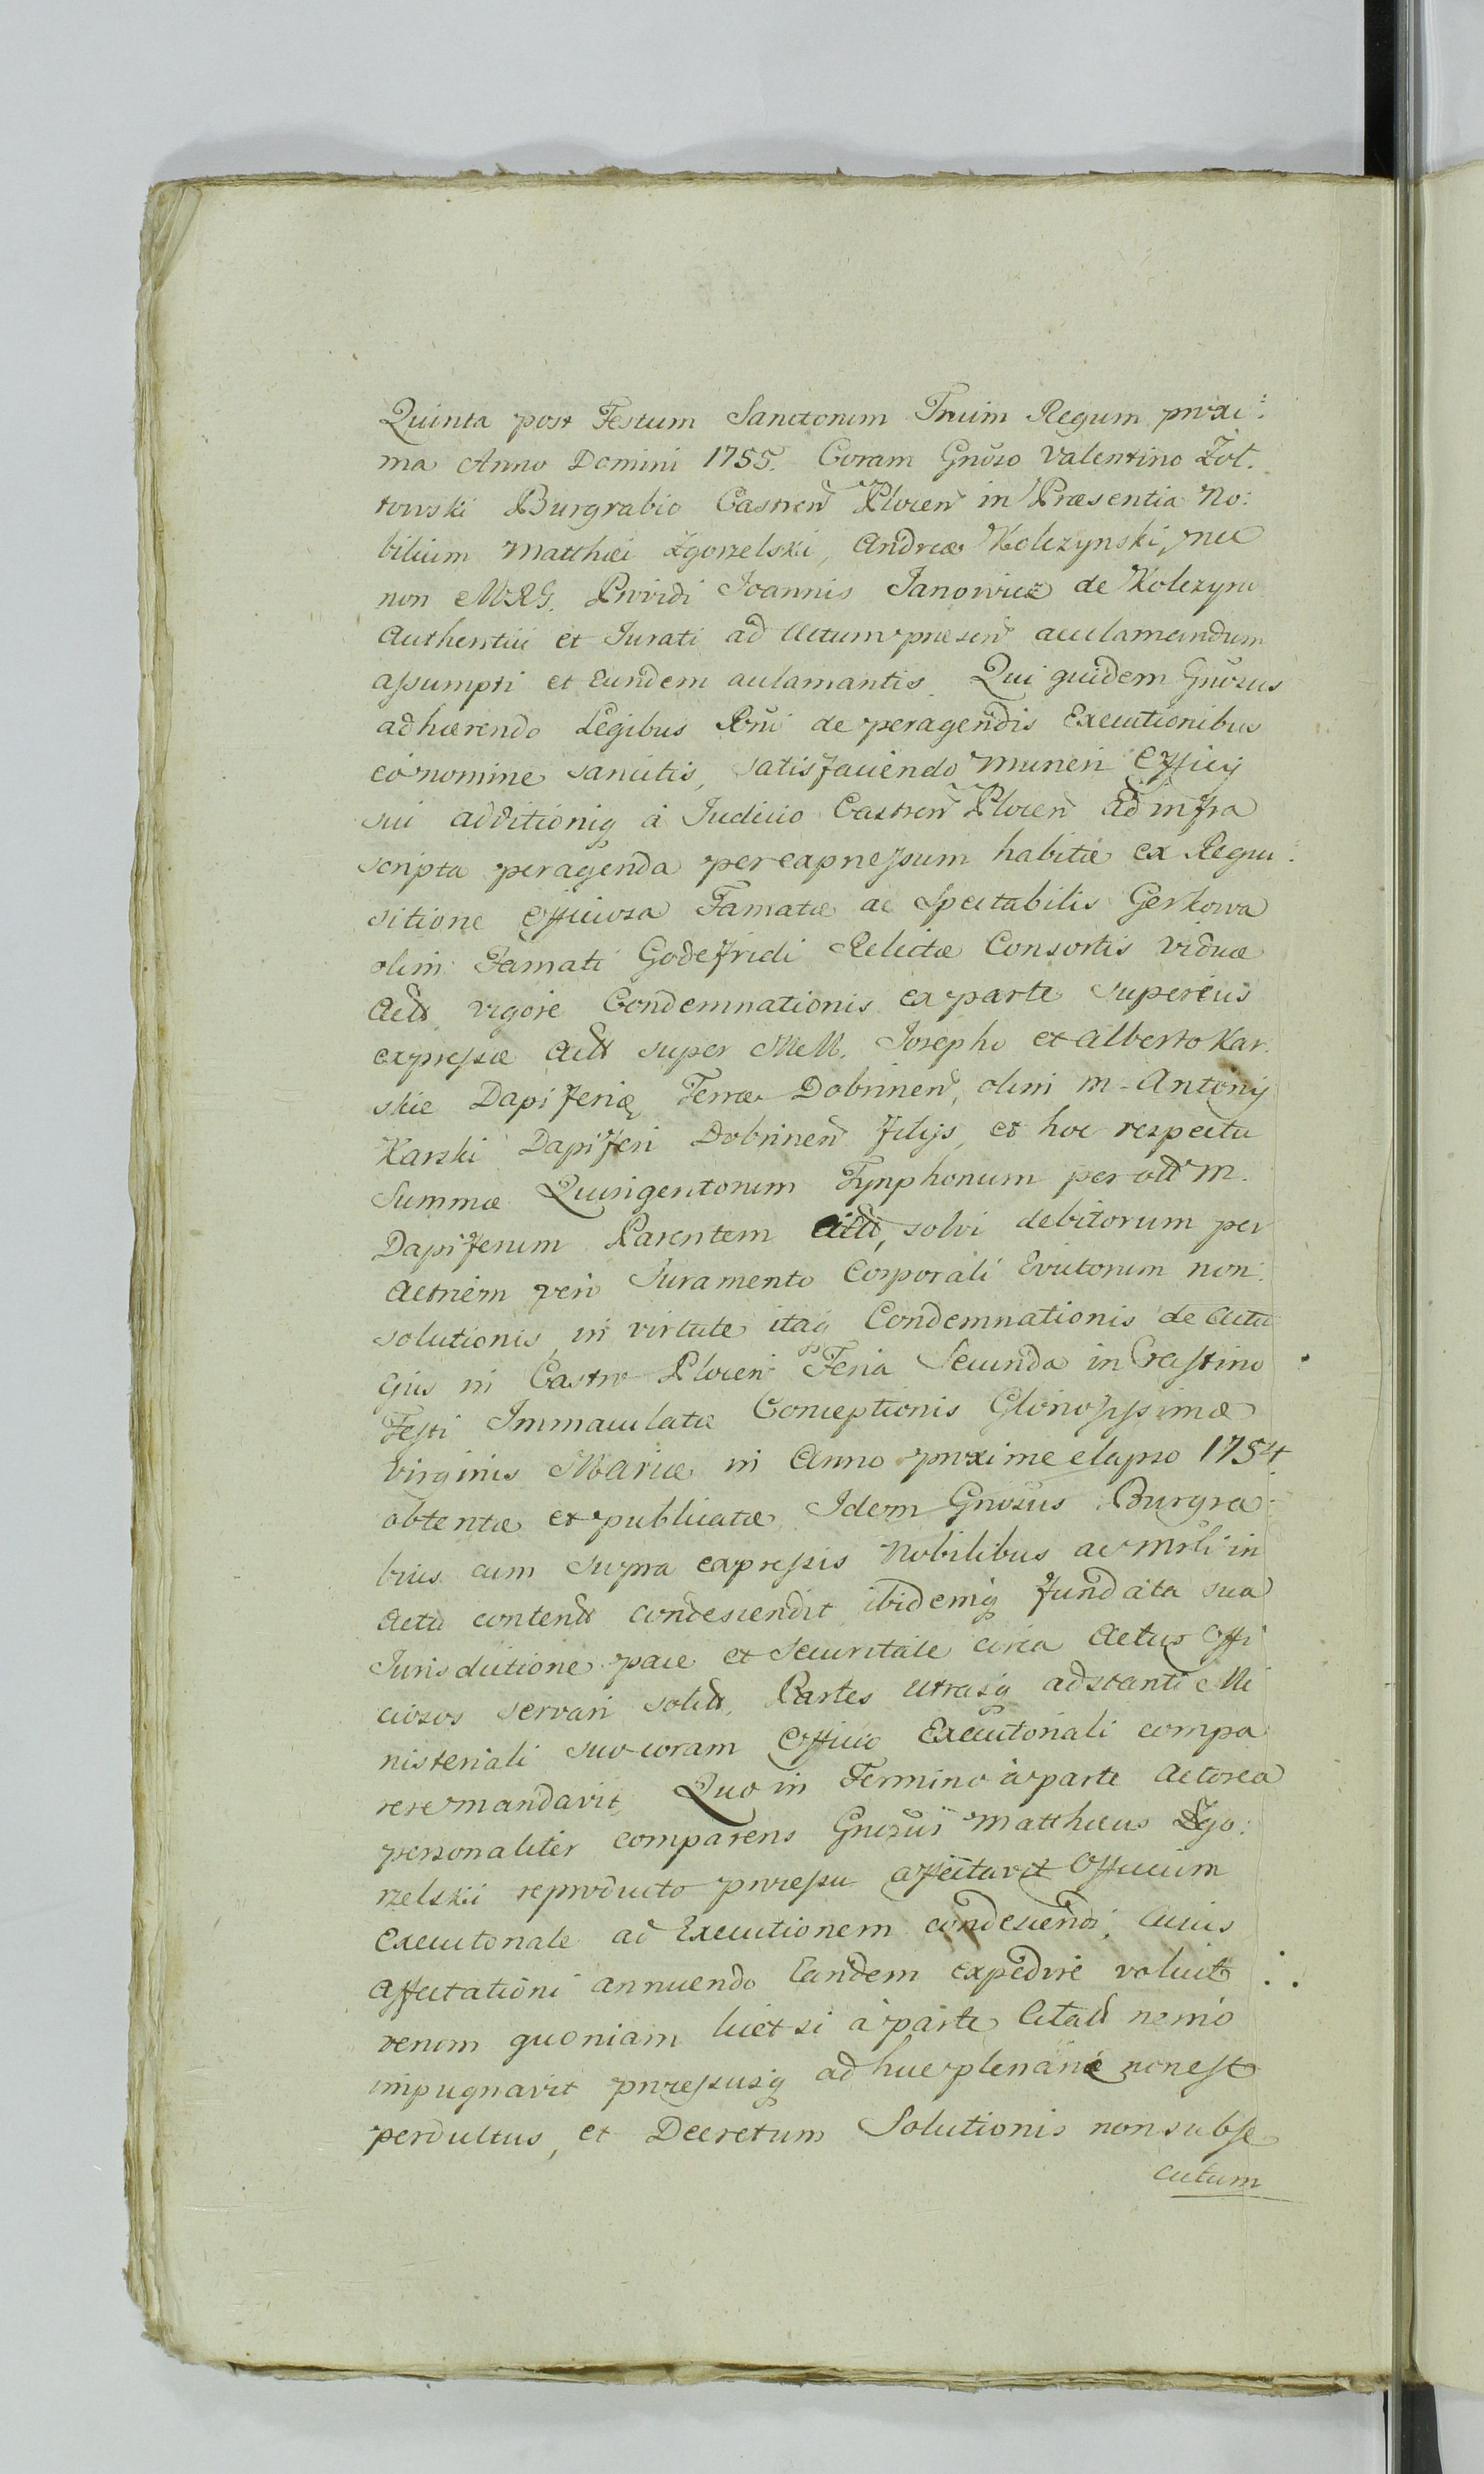 Quinta post Festum Sanctorum Trium Regum proxi:
ma Anno Domini 1755. Coram Gnoso Valentino Żół.
towski Burgrabio Castren Plocen in Præsentia No:
bilium Matthæi Zgorzelski, Andreæ Kolczynski, nec
non MRG. Providi Joannis Janowicz de Kolczyno
Authentici et Jurati ad Actum præsen acclamandum
assumpti et Eundem aclamantis. Qui quidem Gnosus
adhærendo Legibus Rni de peragendis Executionibus
eo nomine sancitis, satisfaciendo muneri Officij
sui additioniq à Judicio Castren Plocen ad infra
scripta peragenda per expressum habitæ ex Requi:
sitione Officiosa Famatæ ac Spectabilis Gerkowa
olim Famati Godefridi Relictæ Consortis viduæ
Act vigore Condemnationis ex parte superius
expressæ Act super MM. Josepho et Alberto Kar.
skie Dapiferiæ Terræ Dobrinen, olim M. Antonij
Karski Dapiferi Dobrinen filijs, et hoc respectu
Summæ Quingentorum Tynphonum per olt M.
Dapiferum Parentem solvi debitorum per
Actricem vero Juramento Corporali Evictorum non
solutionis, in virtute itaq Condemnationis de Actu
ejus in Castro Plocen Feria Secunda in Crastino
Festi Immaculatæ Conceptionis Gloriosissimæ
Virginis Mariæ in Anno proxime elapso 1754
obtentæ et publicatæ Idem Gnosus Burgra-
bius cum supra expressis Nobilibus ac Mrli in
Actu content condescendit ibidemq fundata sua
Jurisdictione pace et securitate circa Actus Offi
ciosos servari solit. Partes utrasq adstanti Mi
nisteriali suo coram Officio Executoriali compa
rere mandavit, Quo in Termino à parte Actorea
personaliter comparens Gnosus Matthæus Zgo:
rzelski reproducto processu affectavit Officium
Executoriale ad Executionem condescendi, Cuius
affectationi annuendo Eandem expedire voluit
verum quoniam licet si à parte Citatt nemo
impugnavit processusq adhuc plenarie non est
perductus, et Decretum Solutionis non subse
cutum